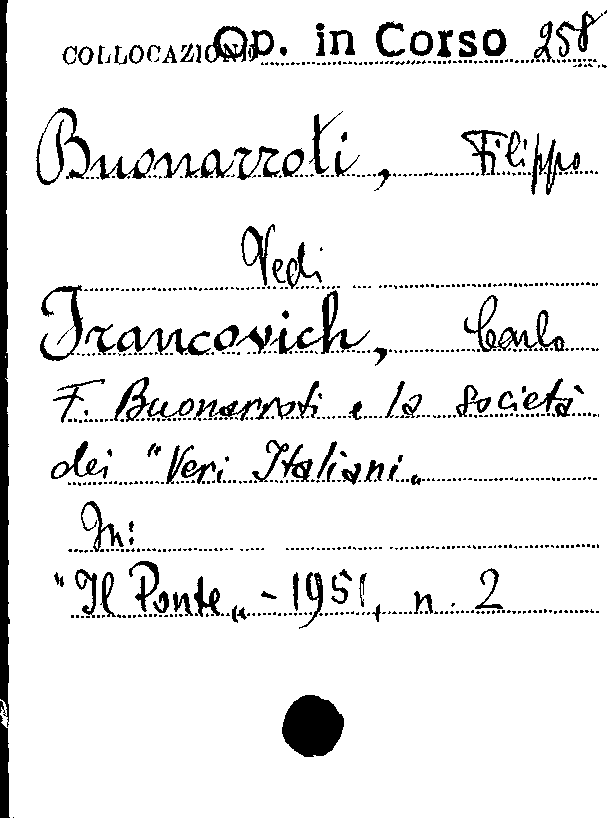 COLLOCAZIONE Op. in Corso 258
Buonarroti, Filippo
Vedi
Francovich, Carlo
F. Buonarroti e la società
dei "Veri Italiani„
In:
"Il Ponte„ - 1951, n. 2